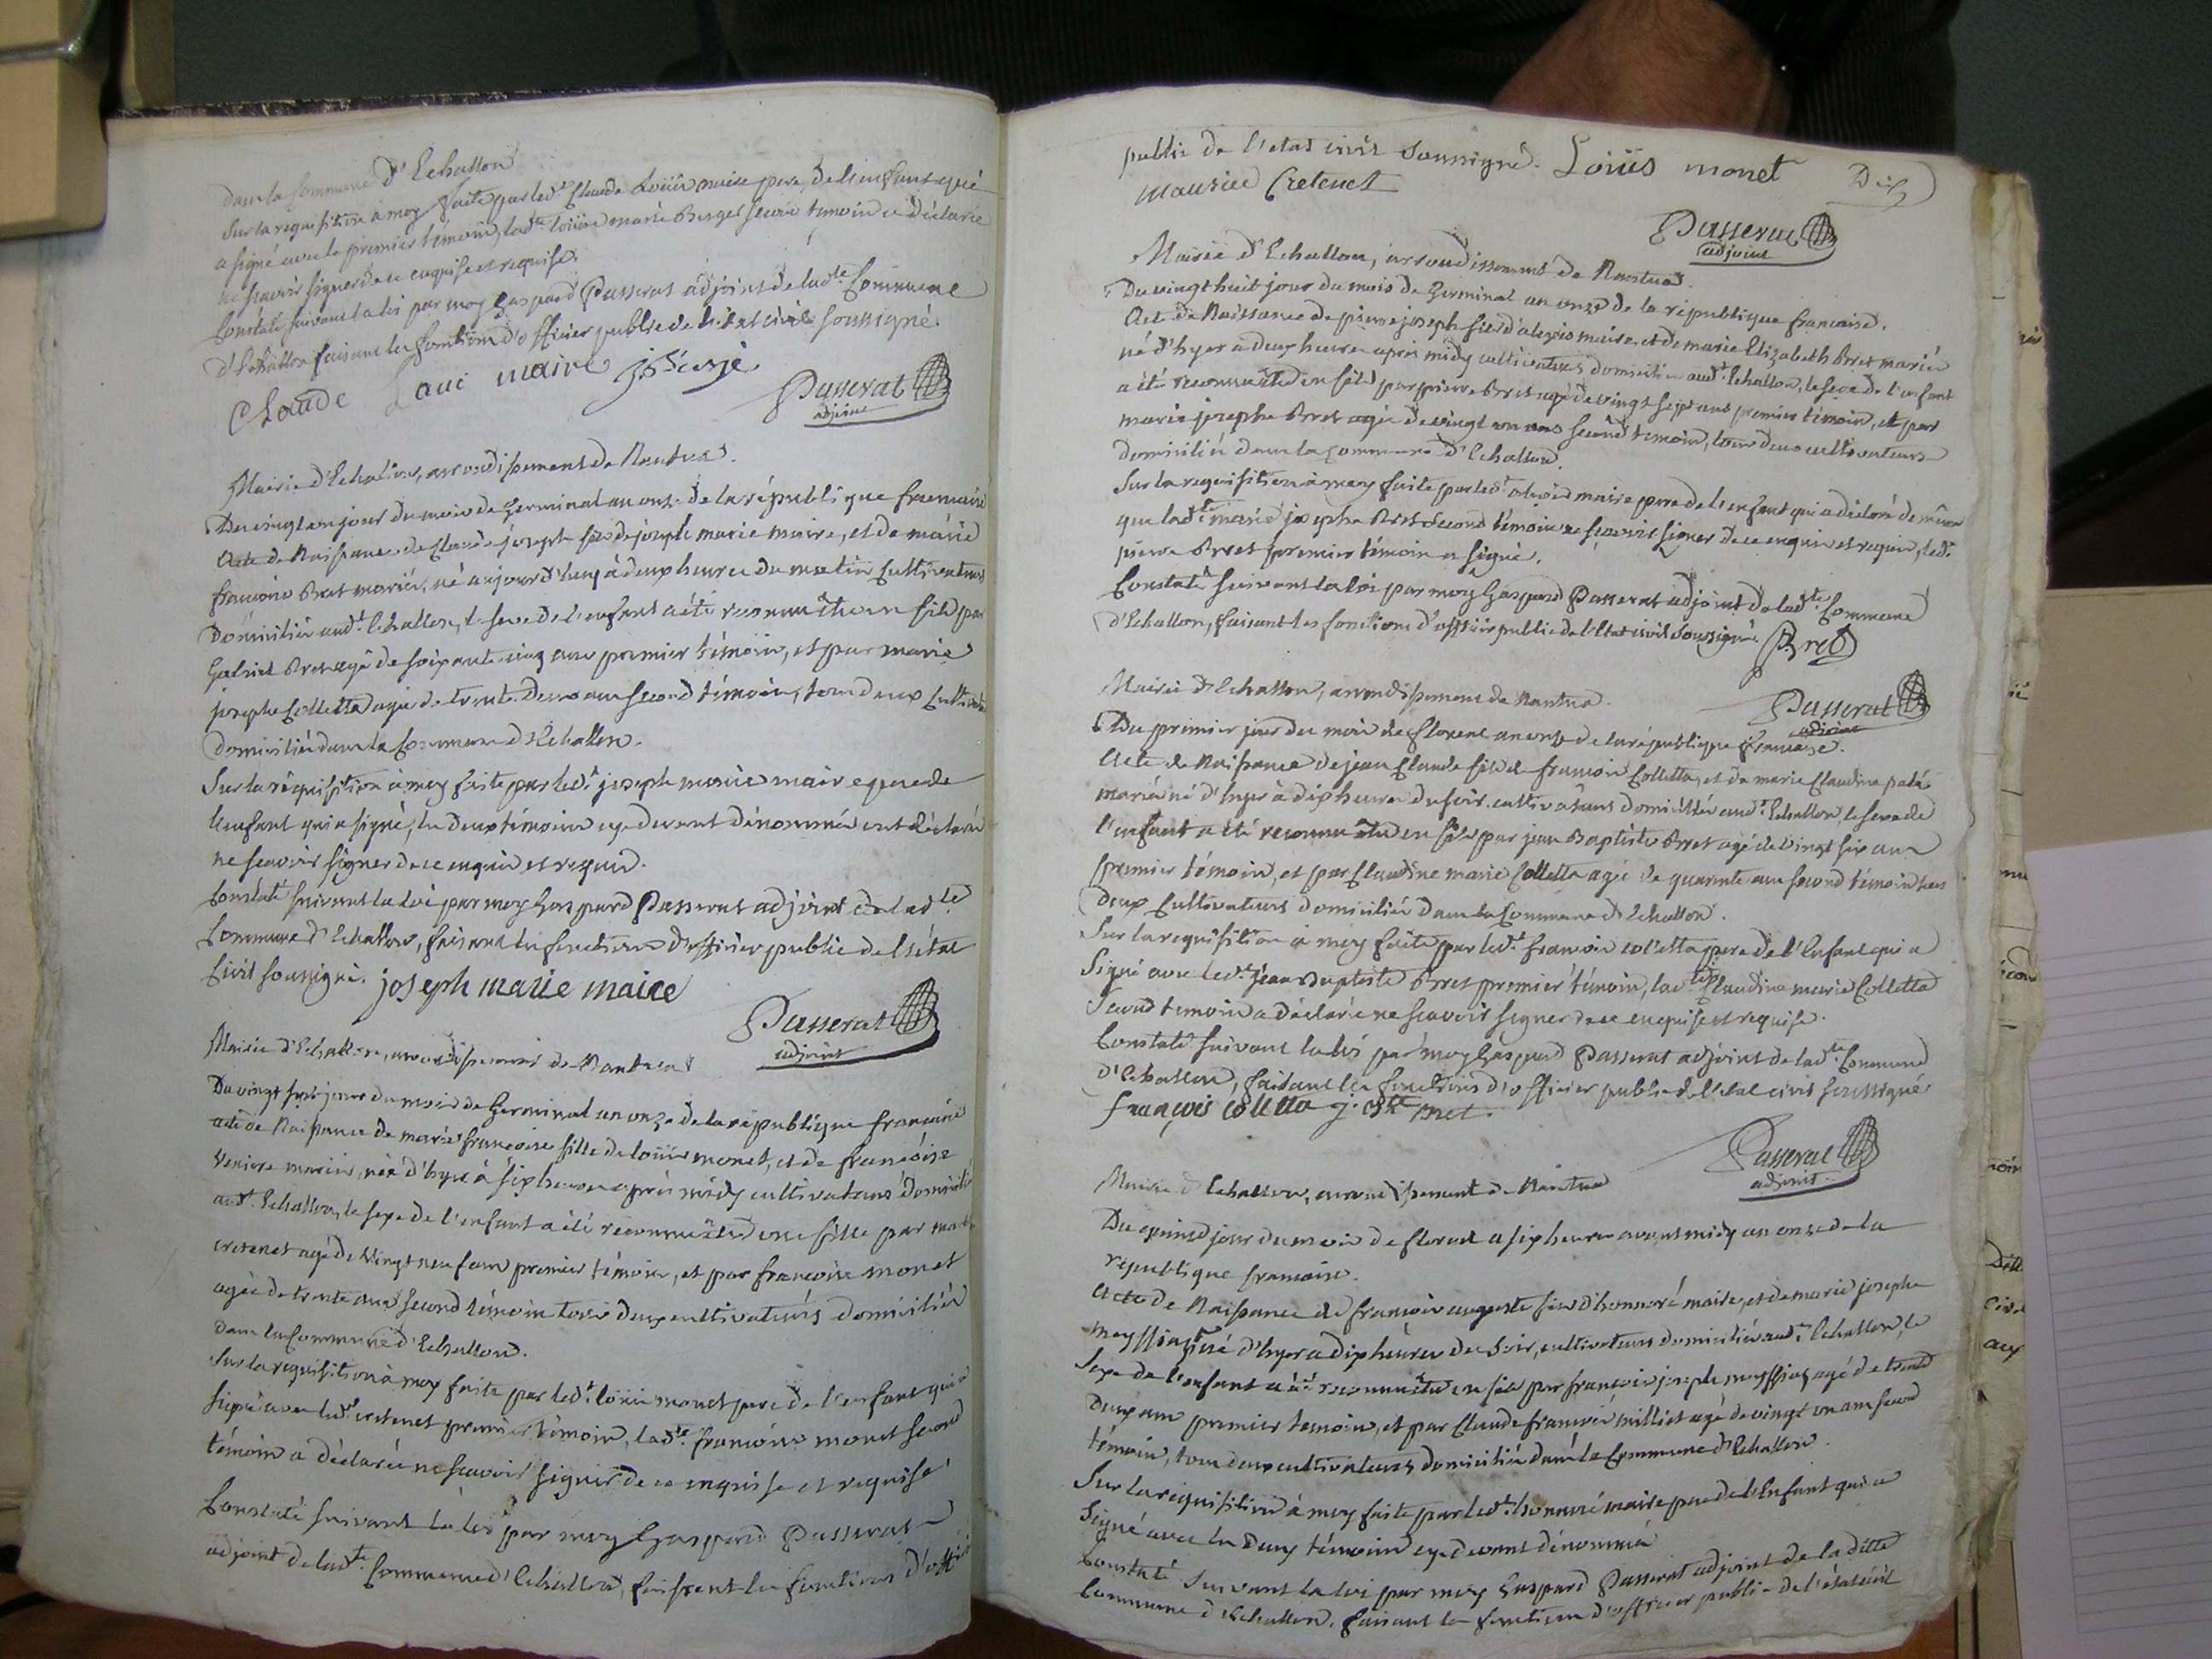 dans la Commune d'Echallon
Sur la requisition à moy faite par led.t Claude Loüis maire pere de l'enfant qui
a signé avec le premier témoin, lad.te loüise marie Berger second temoin a déclaré
ne scavoir signer de ce enquise et requise.
Constaté suivant la loi par moy Gaspard Passerat adjoint de lad.te Commune
d'Echallon faisant les fonctions d'officier public de l'état civil soussigné.
Claude Laui maire
Passerat
adjoint
Mairie d'Echallon, arrondissement de Nantua.
Du vingt un jour du mois de Germinal an onze de la république francaise
Acte de Naissance de Claude joseph fils de joseph marie maire, et de marie
francoise Bret mariés, né aujourd'huy à deux heures du matin Cultivateurs
Domiciliés aud.t Echallon, le sexe de l'enfant a été reconnu être un fils par
Gabriel Bret agé de soixante cinq ans premier témoin, et par marie
josephe Colletta agée de trente deux ans second témoin, tous deux Cultivat
domiciliés dans la Commune d'Echallon.
Sur la réquisition à moy faite par led.t joseph marie maire pere de
l'enfant qui a signé, les deux témoins cy devant dénommés ont déclaré
ne scavoir signer de ce enquis et requis.
Constaté suivant la loi par moy Gaspard Passerat adjoint de lad.te
Commune d'Echallon, faisant les fonctions d'officier public de l'état
Civil soussigné. joseph marie maire
Passerat
adjoint
Mairie d'Echallon, arrondissement de Nantua
Du vingt sept jour du mois de Germinal an onze de la république francaise
acte de Naissance de marie francoise fille de loüis monet, et de francoise
mariés, née d'hyer à six heures après midy cultivateurs domiciliés
aud.t Echallon, le sexe de l'enfant a été reconnu être une fille par
cretenet agé de vingt neuf ans premier témoin, et par francoise monet
agée de trente ans second témoin tous deux cultivateurs domiciliés
dans la Commune d'Echallon.
Sur la requisition à moy faite par led.t loüis monet pere de l'enfant qui a
signé avec led.t cretenet premier témoin, lad.te francoise monet second
témoin a déclaré ne scavoir signer de ce enquise et requise
Constaté suivant la loi par moy Gaspard Passerat
adjoint de lad.te Commune d'Echallon, faisant les fonctions d'offici
public de l'etat civil soussigné. Loüis monet
maurice Cretenet
Passerat
adjoint
Mairie d'Echallon, arrondissement de Nantua.
Du vingt huit jour du mois de Germinal an onze de la république francaise.
Acte de Naissance de pierre joseph fils d'alexis maire, et de marie Elizabeth Bret mariés
né d'hyer a deux heures après midy cultivateurs domiciliés aud.t Echallon, le sexe de l'enfant
a été reconnu être un fils par pierre Bret agé de vingt sept ans premier témoin, et par
marie josephe Bret agée de vingt un ans second temoin, tous deux cultivateurs
domiciliés dans la commune d'Echallon.
Sur la requisition à moy faite par led.t alexis maire pere de l'enfant qui a déclaré de même
que lad.te marie josephe Bret second témoin ne scavoir signer de ce enquis et requis, led.t
pierre Bret premier témoin a signé.
Constaté suivant la loi par moy Gaspard Passerat adjoint de lad.te Commune
d'Echallon, faisant les fonctions d'officier public de l'Etat civil soussigné. Bret
Passerat
adjoint
Mairie d'Echallon, arrondissement de Nantua.
Du premier jour du mois de floreal an onze de la république francaise.
Acte de Naissance de jean Claude fils de francois Colletta, et de marie Claudine
mariés né d'hyer à dix heures du soir cultivateurs domiciliés aud.t Echallon, le sexe de
l'enfant a été reconnu être un fils par jean Baptiste Bret agé de vingt six ans
premier témoin, et par Claudine marie Colletta agée de quarante ans second témoin tous
deux Cultivateurs domiciliés dans la Commune d'Echallon.
Sur la requisition à moy faite par led.t francois Colletta pere de l'Enfant qui a
signé avec led.t jean Baptiste Bret premier témoin, lad.te Claudine marie Colletta
second temoin a déclaré ne scavoir signer de ce enquise et requise.
Constaté suivant la loi par moy Gaspard Passerat adjoint de lad.te Commune
d'Echallon, faisant les fonctions d'officier public de l'état civil soussigné
françois Colletta j. Bte Bret.
Passerat
adjoint
Mairie d'Echallon, arrondissement de Nantua
Du jour du mois de floreal a six heures avant midy an onze de la
république francaise.
Acte de Naissance de francois auguste fils d'honnoré maire, et de marie josephe
né d'hyer a dix heures du soir, cultivateurs domiciliés aud.t Echallon, le
sexe de l'enfant a été reconnu être un fils par francois joseph agé de trente
deux ans premier temoin, et par Claude francois milliet agé de vingt un ans second
témoin, tous deux cultivateurs domiciliés dans la Commune d'Echallon.
Sur la réquisition à moy faite par led.t honnoré maire pere de l'Enfant qui a
signé avec les deux témoins cy devant dénommés
Constaté suivant la loi par moy Gaspard Passerat adjoint de la ditte
Commune d'Echallon, faisant les fonctions d'officier public de l'état civil